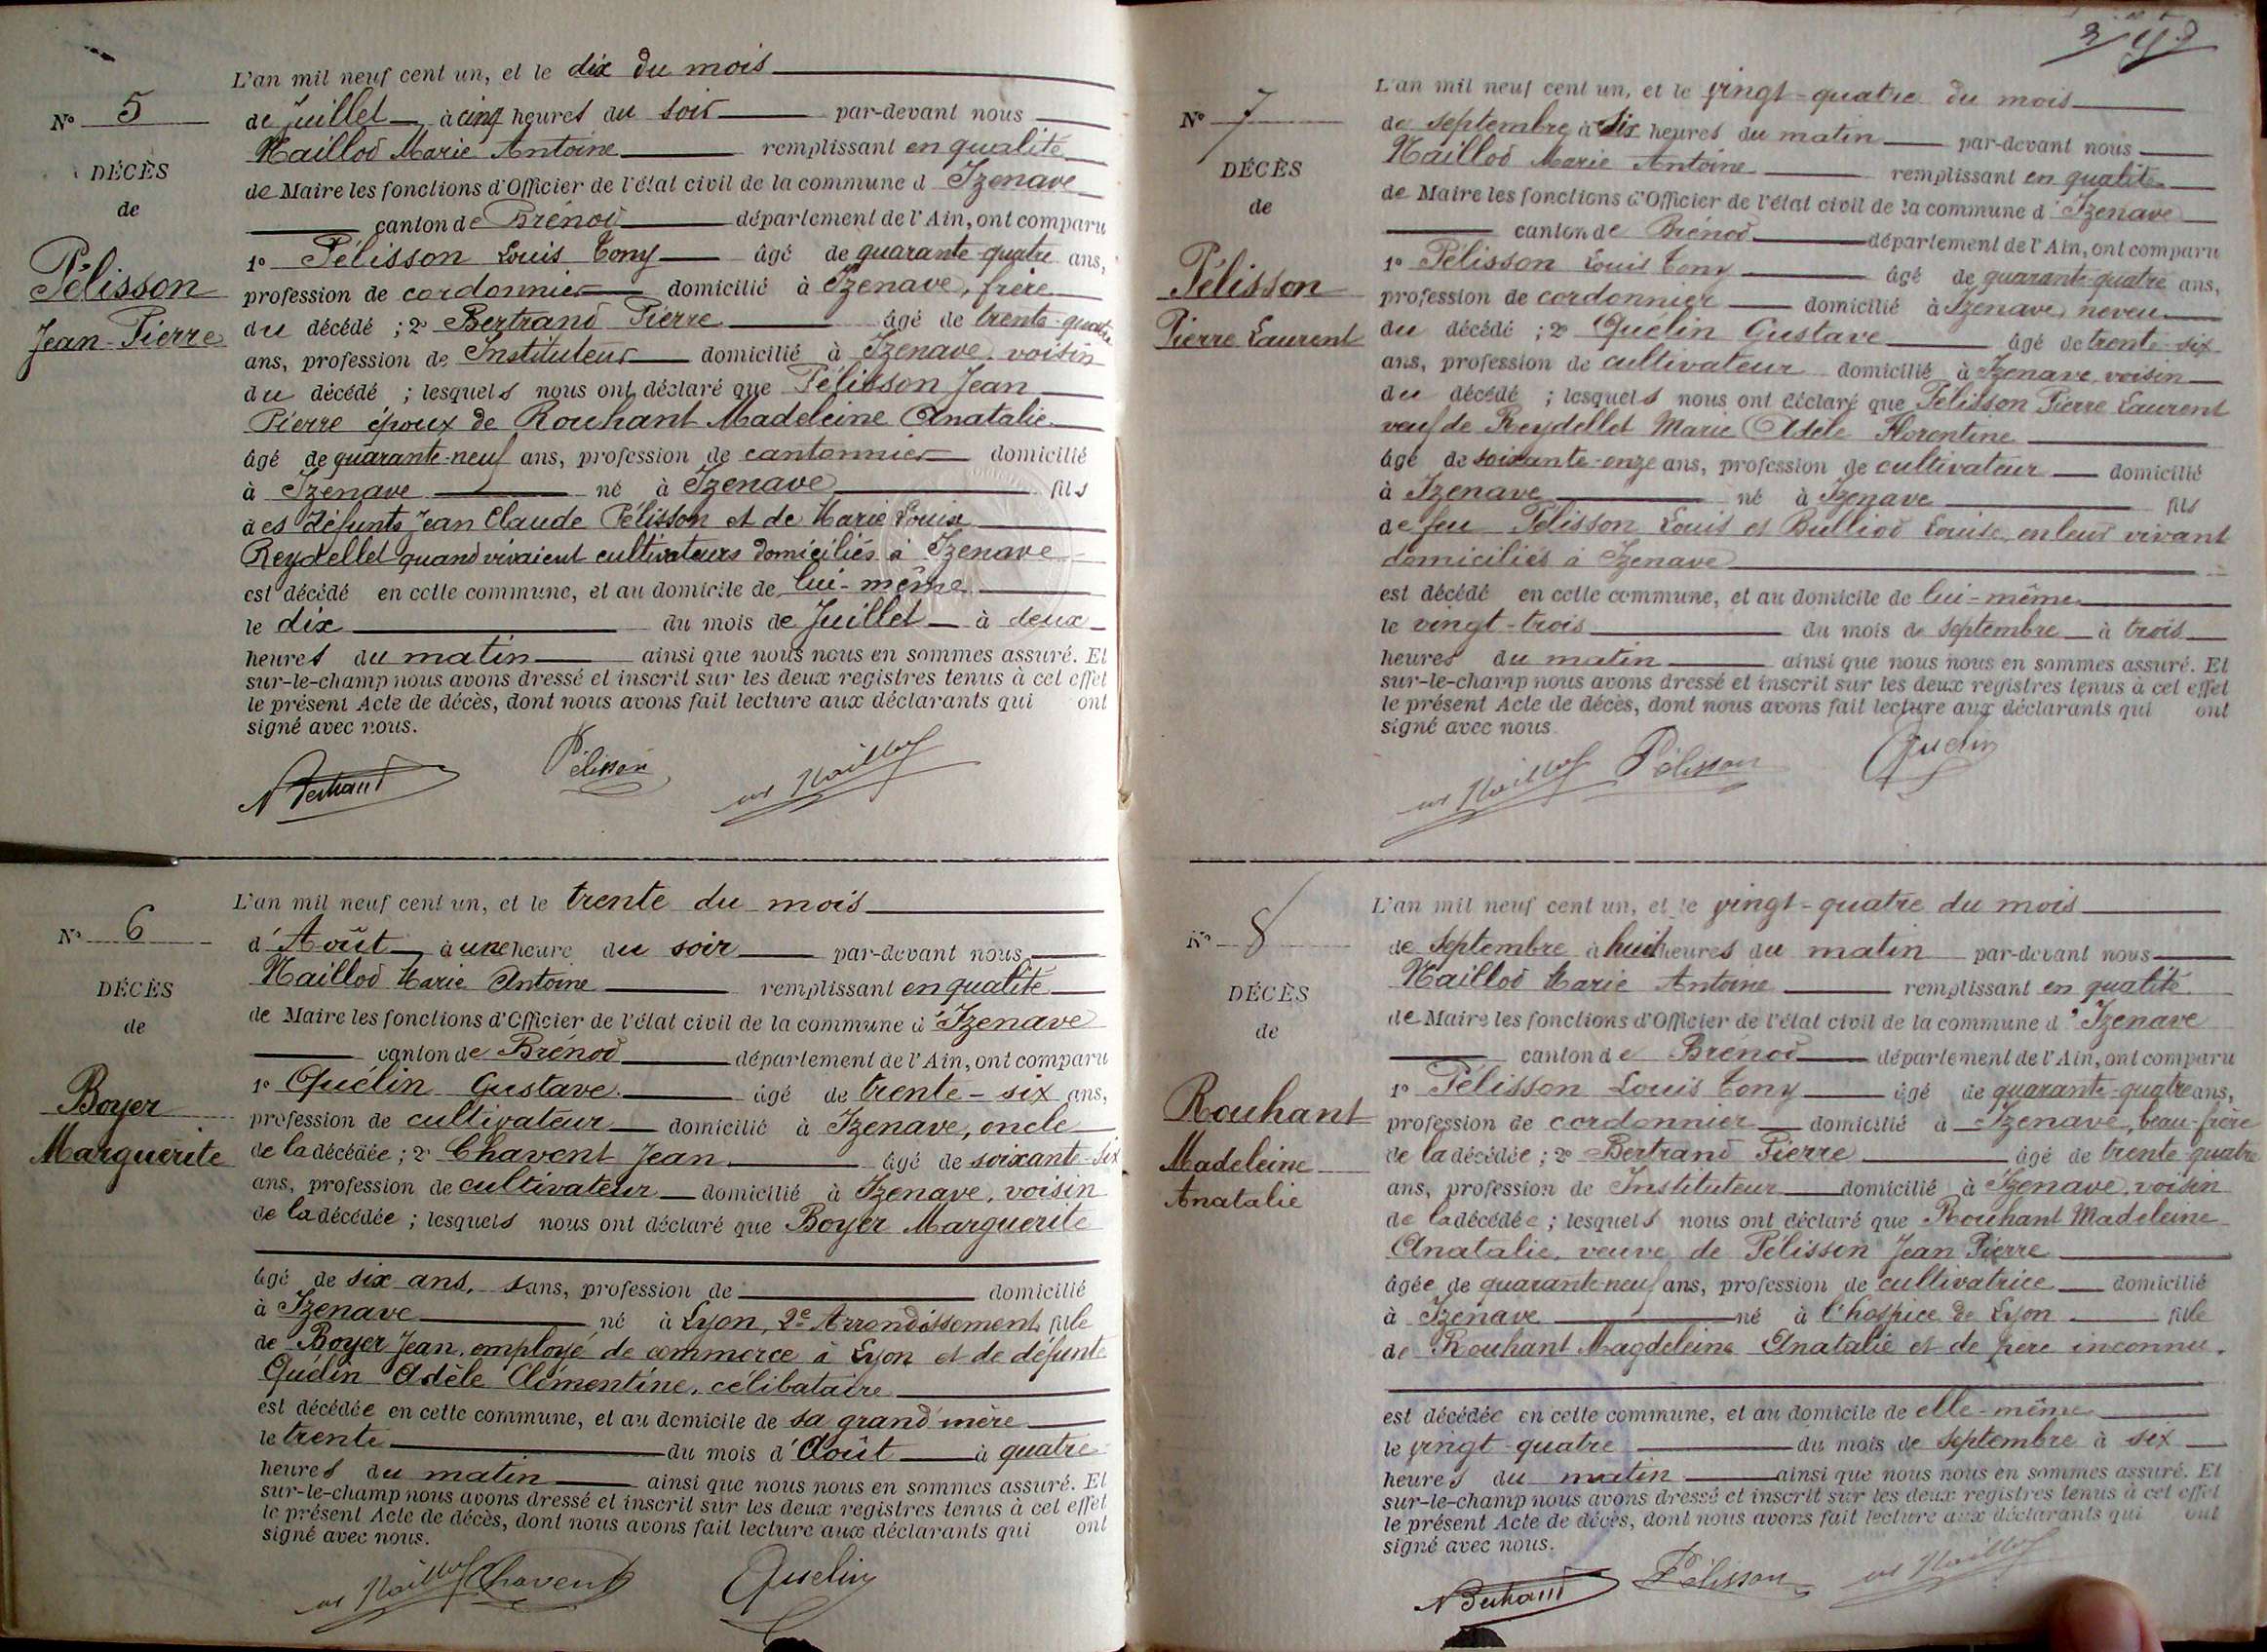 N° 5
DÉCÈS
de
Pélisson
Jean-Pierre
L'an mil neuf cent un, et le dix du mois
de Juillet à cinq heures du soir par-devant nous
Maillod Marie Antoine remplissant en qualité
de Maire les fonctions d'Officier de l'état civil de la commune d'Izenave
canton de Brénod département de l'Ain, ont comparu
1° Pélisson Louis Tony âgé de quarante-quatre ans,
profession de cordonnier domicilié à Izenave, frère
du décédé ; 2° Bertrand Pierre âgé de trente-quatre
ans, profession de Instituteur domicilié à Izenave, voisin
du décédé ; lesquels nous ont déclaré que Pélisson Jean
Pierre époux de Rouhant Madeleine Anatalie
âgé de quarante-neuf ans, profession de cantonnier domicilié
à Izenave né à Izenave fils
des défunts Jean Claude Pélisson et de Marie Louise
Reydellet quand vivaient cultivateurs domiciliés à Izenave
est décédé en cette commune, et au domicile de lui-même
le dix du mois de Juillet à deux
heures du matin ainsi que nous nous en sommes assuré. Et
sur-le-champ nous avons dressé et inscrit sur les deux registres tenus à cet effet
le présent Acte de décès, dont nous avons fait lecture aux déclarants qui ont
signé avec nous.
Pélisson
N° 6
DÉCÈS
de
Boyer
Marguerite
L'an mil neuf cent un, et le trente du mois
d'Août à une heure du soir par-devant nous
Maillod Marie Antoine remplissant en qualité
de Maire les fonctions d'Officier de l'état civil de la commune d'Izenave
canton de Brénod département de l'Ain, ont comparu
1° Quélin Gustave âgé de trente-six ans,
profession de cultivateur domicilié à Izenave, oncle
de la décédée ; 2° Chavent Jean âgé de soixante-six
ans, profession de cultivateur domicilié à Izenave, voisin
de la décédée ; lesquels nous ont déclaré que Boyer Marguerite
âgé de six ans, sans, profession de domicilié
à Izenave né à Lyon, 2e Arrondissement fille
de Boyer Jean, employé de commerce à Lyon et de défunte
Quélin Adèle Clémentine, célibataire
est décédée en cette commune, et au domicile de sa grand'mère
le trente du mois d'Août à quatre
heures du matin ainsi que nous nous en sommes assuré. Et
sur-le-champ nous avons dressé et inscrit sur les deux registres tenus à cet effet
le présent Acte de décès, dont nous avons fait lecture aux déclarants qui ont
signé avec nous.
Chavent Quelin
N° 7
DÉCÈS
de
Pélisson
Pierre Laurent
L'an mil neuf cent un, et le vingt-quatre du mois
de septembre à six heures du matin par-devant nous
Maillod Marie Antoine remplissant en qualité
de Maire les fonctions d'Officier de l'état civil de la commune d'Izenave
canton de Brénod département de l'Ain, ont comparu
1° Pélisson Louis Tony âgé de quarante-quatre ans,
profession de cordonnier domicilié à Izenave, neveu
du décédé ; 2° Quélin Gustave âgé de trente-six
ans, profession de cultivateur domicilié à Izenave, voisin
du décédé ; lesquels nous ont déclaré que Pélisson Pierre Laurent
veuf de Reydellet Marie Adèle Florentine
âgé de soixante-onze ans, profession de cultivateur domicilié
à Izenave né à Izenave fils
de feu Pélisson Louis et Bulliod Louise, en leur vivant
domiciliés à Izenave
est décédé en cette commune, et au domicile de lui-même
le vingt-trois du mois de septembre à trois
heures du matin ainsi que nous nous en sommes assuré. Et
sur-le-champ nous avons dressé et inscrit sur les deux registres tenus à cet effet
le présent Acte de décès, dont nous avons fait lecture aux déclarants qui ont
signé avec nous
Pélisson Quelin
N° 8
DÉCÈS
de
Rouhant
Madeleine
Anatalie
L'an mil neuf cent un, et le vingt-quatre du mois
de septembre à huit heures du matin par-devant nous
Maillod Marie Antoine remplissant en qualité
de Maire les fonctions d'Officier de l'état civil de la commune d'Izenave
canton de Brénod département de l'Ain, ont comparu
1° Pélisson Louis Tony âgé de quarante-quatre ans,
profession de cordonnier domicilié à Izenave, beau-frère
de la décédée ; 2° Bertrand Pierre âgé de trente quatre
ans, profession de Instituteur domicilié à Izenave, voisin
de la décédée ; lesquels nous ont déclaré que Rouhant Madeleine
Anatalie, veuve de Pélisson Jean Pierre
âgée de quarante-neuf ans, profession de cultivatrice domicilié
à Izenave né à l'hospice de Lyon fille
de Rouhant Magdeleine Anatalie et de père inconnu.
est décédée en cette commune, et au domicile de elle-même
le vingt-quatre du mois de septembre à six
heures du matin ainsi que nous nous en sommes assuré. Et
sur-le-champ nous avons dressé et inscrit sur les deux registres tenus à cet effet
le présent Acte de décès, dont nous avons fait lecture aux déclarants qui ont
signé avec nous.
Pélisson